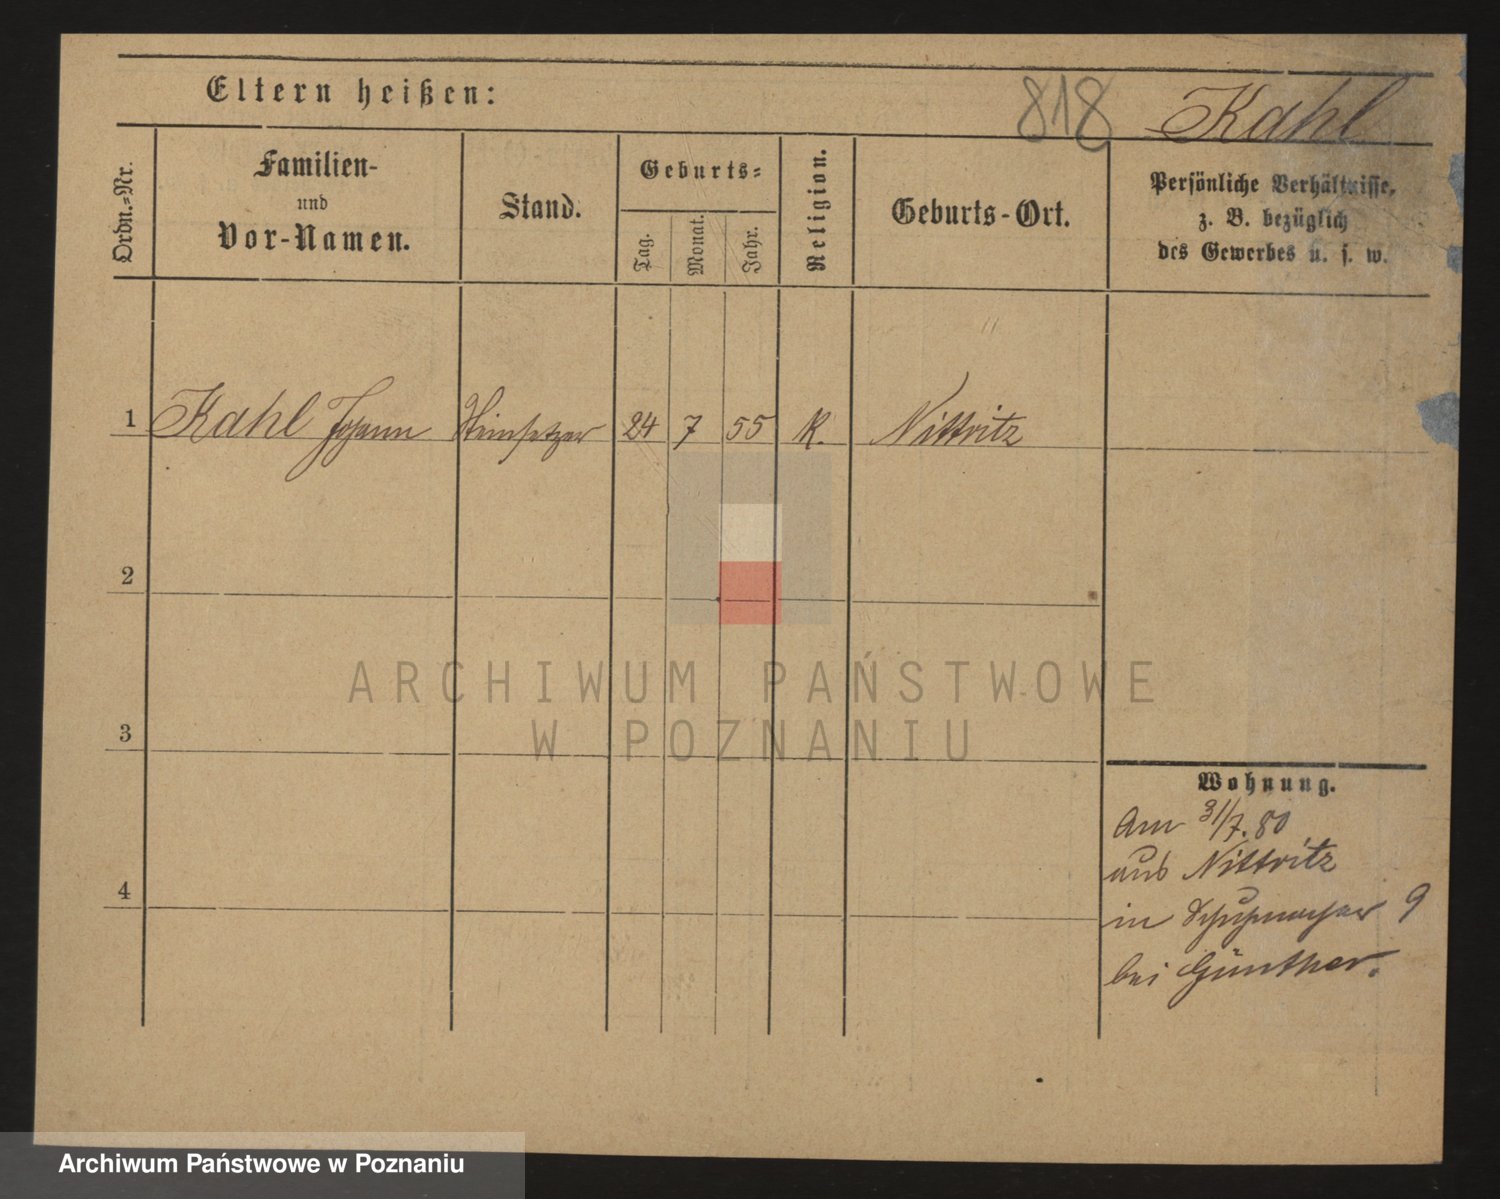 Eltern heißen:
818 Kahl
Ordn.=Nr.
Familien-
und
Vor-Namen.
Stand.
Geburts=
Tag.
Monat.
Jahr.
Religion.
Geburts-Ort.
Persönliche Verhältnisse,
z. B. bezüglich
des Gewerbes u. s. w.
1 Kahl Johann Steinsetzer 24 7 55 K. Nittritz
2
3
4
Wohnung.
Am 31/7. 80
aus Nittritz
in Schuhmacher 9
bei Günther.
ARCHIWUM PAŃSTWOWE
W POZNANIU
Archiwum Państwowe w Poznaniu